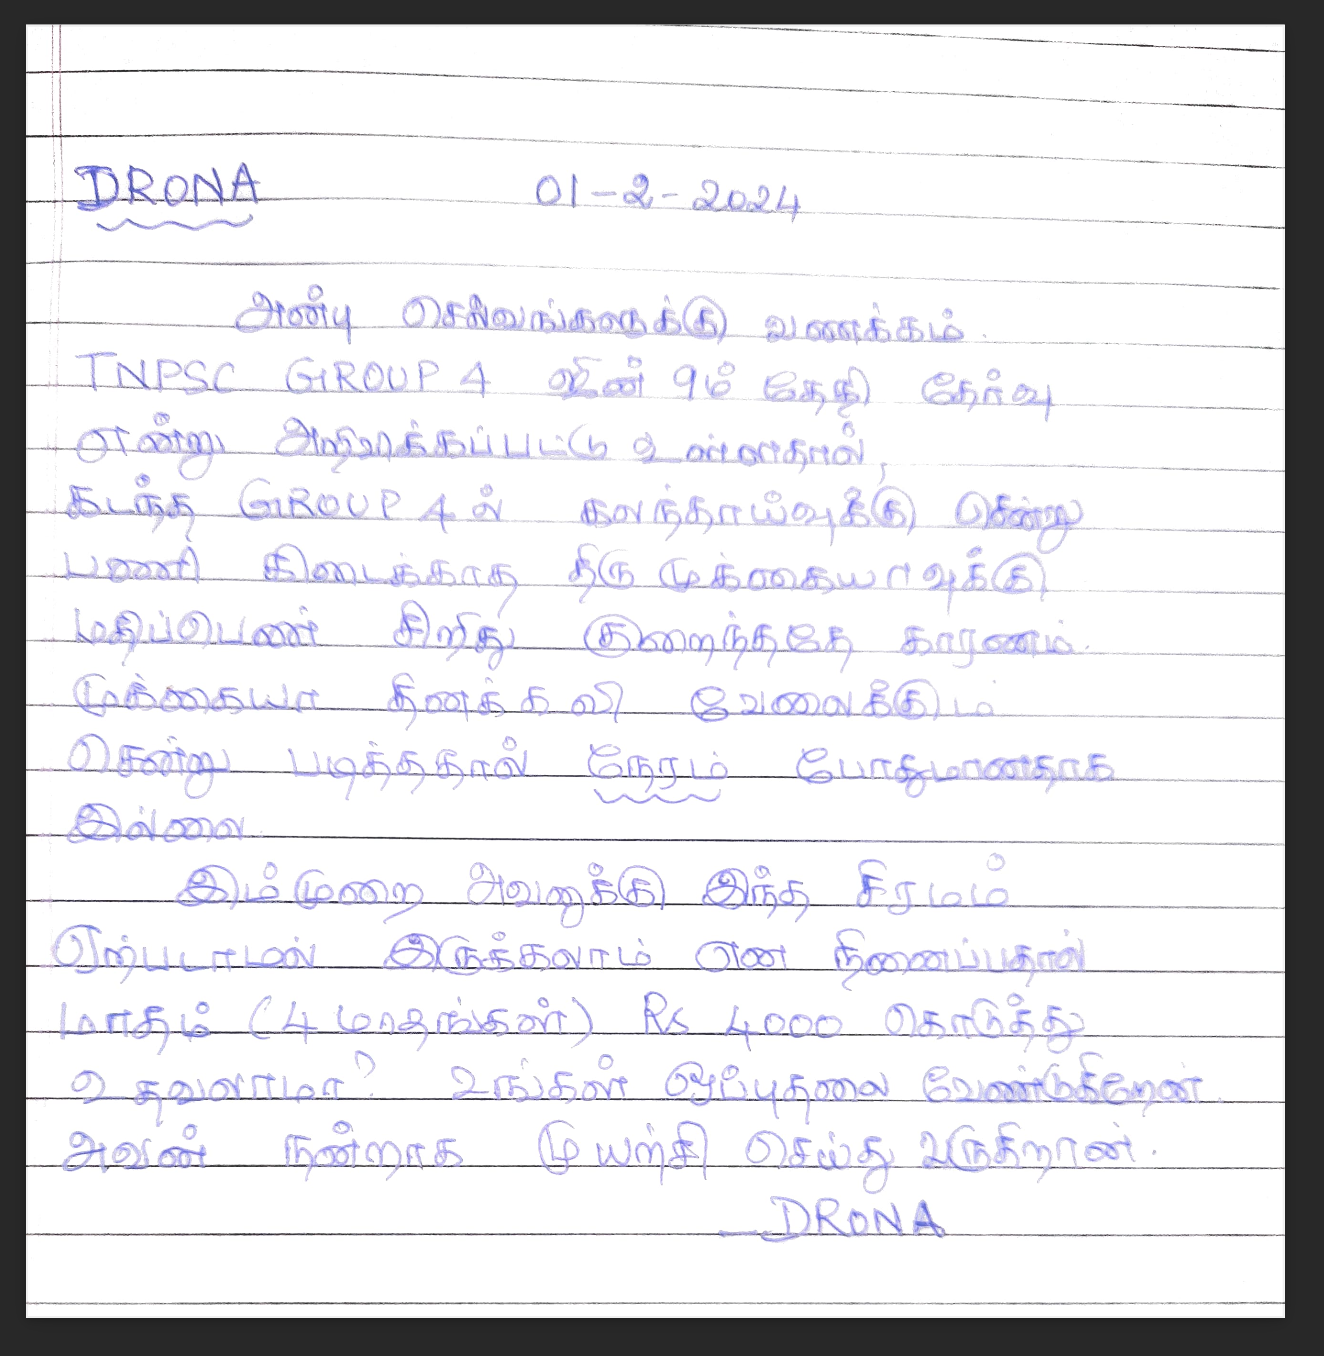 DRONA 01-2-2024
அன்பு செல்வங்களுக்கு வணக்கம்.
TNPSC GROUP 4 ஜூன் 9ம் தேதி தேர்வு
என்று அறிவிக்கப்பட்டு உள்ளதால்,
கடந்த GROUP 4ல் கலந்தாய்வுக்கு சென்று
பணி கிடைக்காத திரு முக்கையாவுக்கு
மதிப்பெண் சிறிது குறைந்ததே காரணம்.
முக்கையா தினக்கலி வேலைக்கும்
சென்று படித்ததால் நேரம் போதுமானதாக
இல்லை.
இம்முறை அவனுக்கு இந்த சிரமம்
ஏற்படாமல் இருக்கலாம் என நினைப்பதால்
மாதம் (4 மாதங்கள்) Rs 4000 கொடுத்து
உதவலாமா? உங்கள் ஒப்புதலை வேண்டுகிறேன்.
அவன் நன்றாக முயற்சி செய்து வருகிறான்.
DRONA